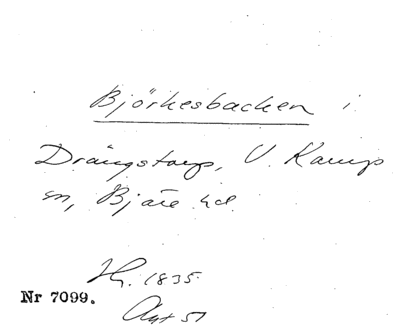 Björkesbacken i
Drängstorp, V. Karup
sn, Bjäre hd.
H. 1835
Nr 7099.
Akt 51